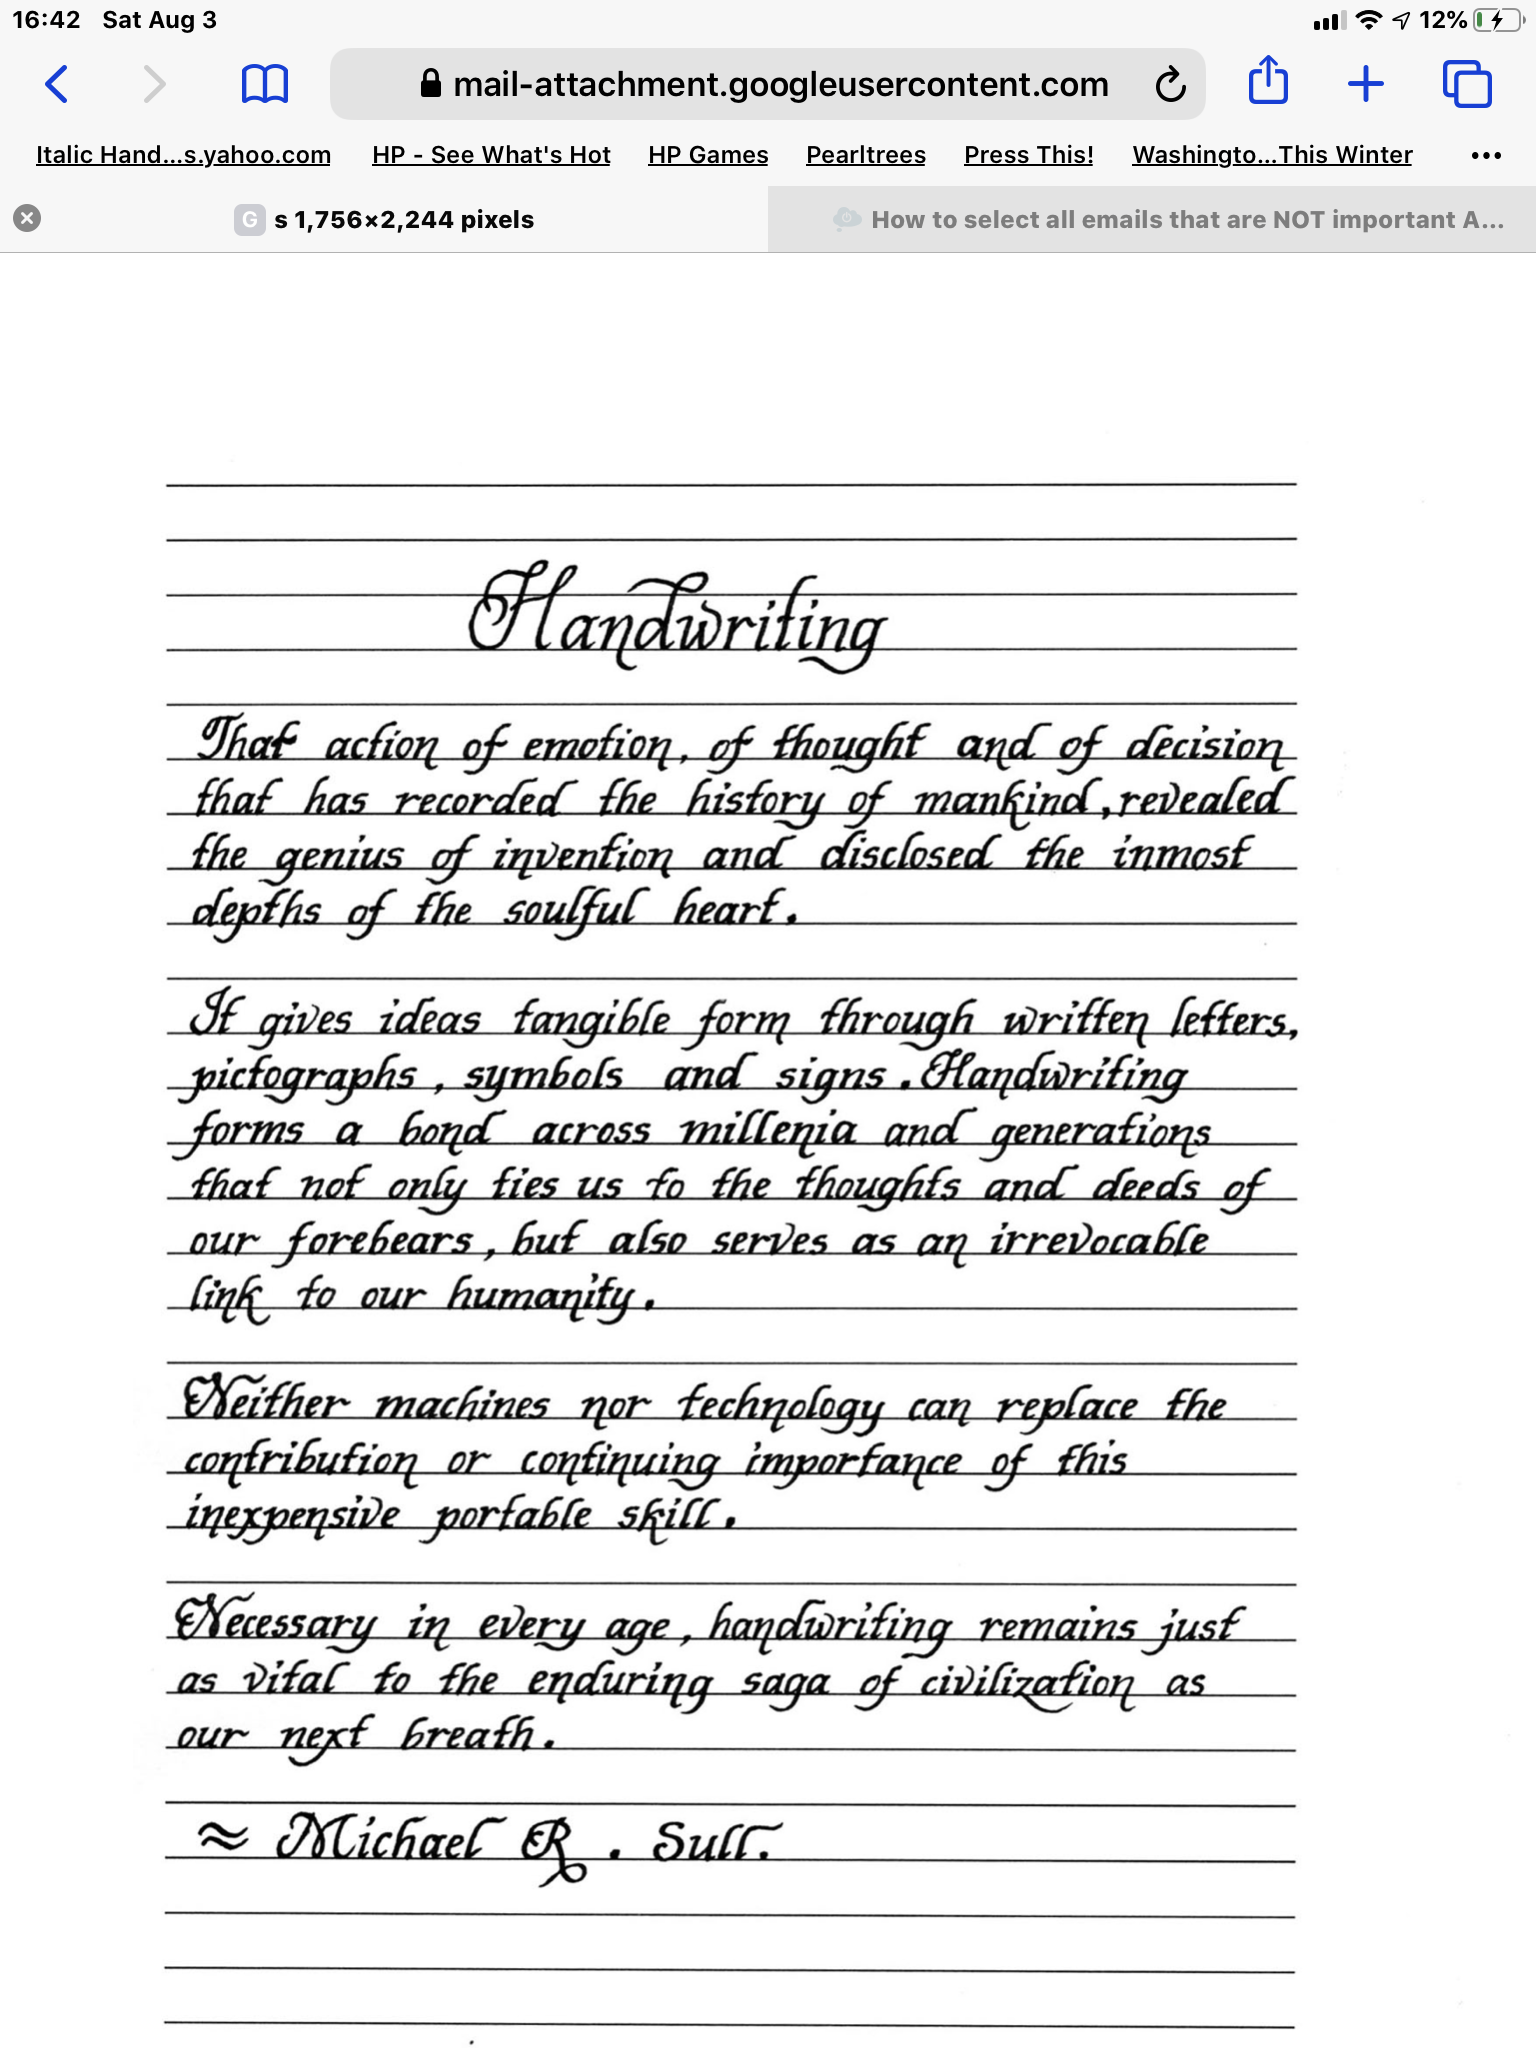 16:42 Sat Aug 3 12%
mail-attachment.googleusercontent.com
Italic Hand...s.yahoo.com HP - See What's Hot HP Games Pearltrees Press This! Washingto...This Winter ...
G s 1,756×2,244 pixels How to select all emails that are NOT important A...
Handwriting
That action of emotion, of thought and of decision
that has recorded the history of mankind, revealed
the genius of invention and disclosed the inmost
depths of the soulful heart.
It gives ideas tangible form through written letters,
pictographs, symbols and signs. Handwriting
forms a bond across millenia and generations
that not only ties us to the thoughts and deeds of
our forebears, but also serves as an irrevocable
link to our humanity.
Neither machines nor technology can replace the
contribution or continuing importance of this
inexpensive portable skill.
Necessary in every age, handwriting remains just
as vital to the enduring saga of civilization as
our next breath.
≈ Michael R. Sull.